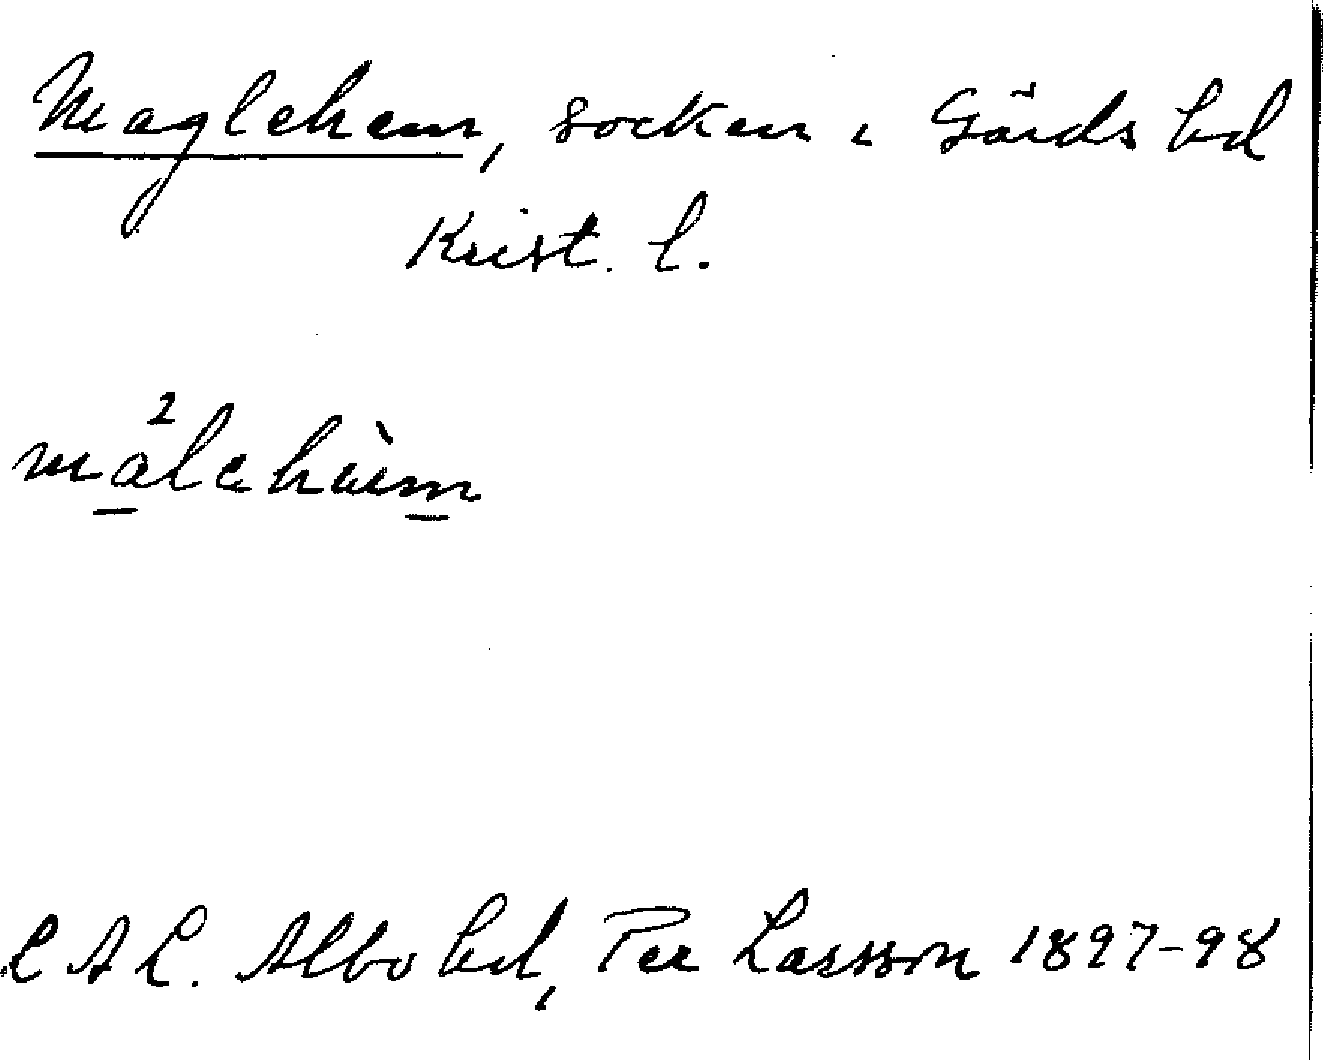 Maglehem, socken i Gärds hd
Krist. l.
2
målehàim
LAL. Albo hd, Per Larsson 1897-98